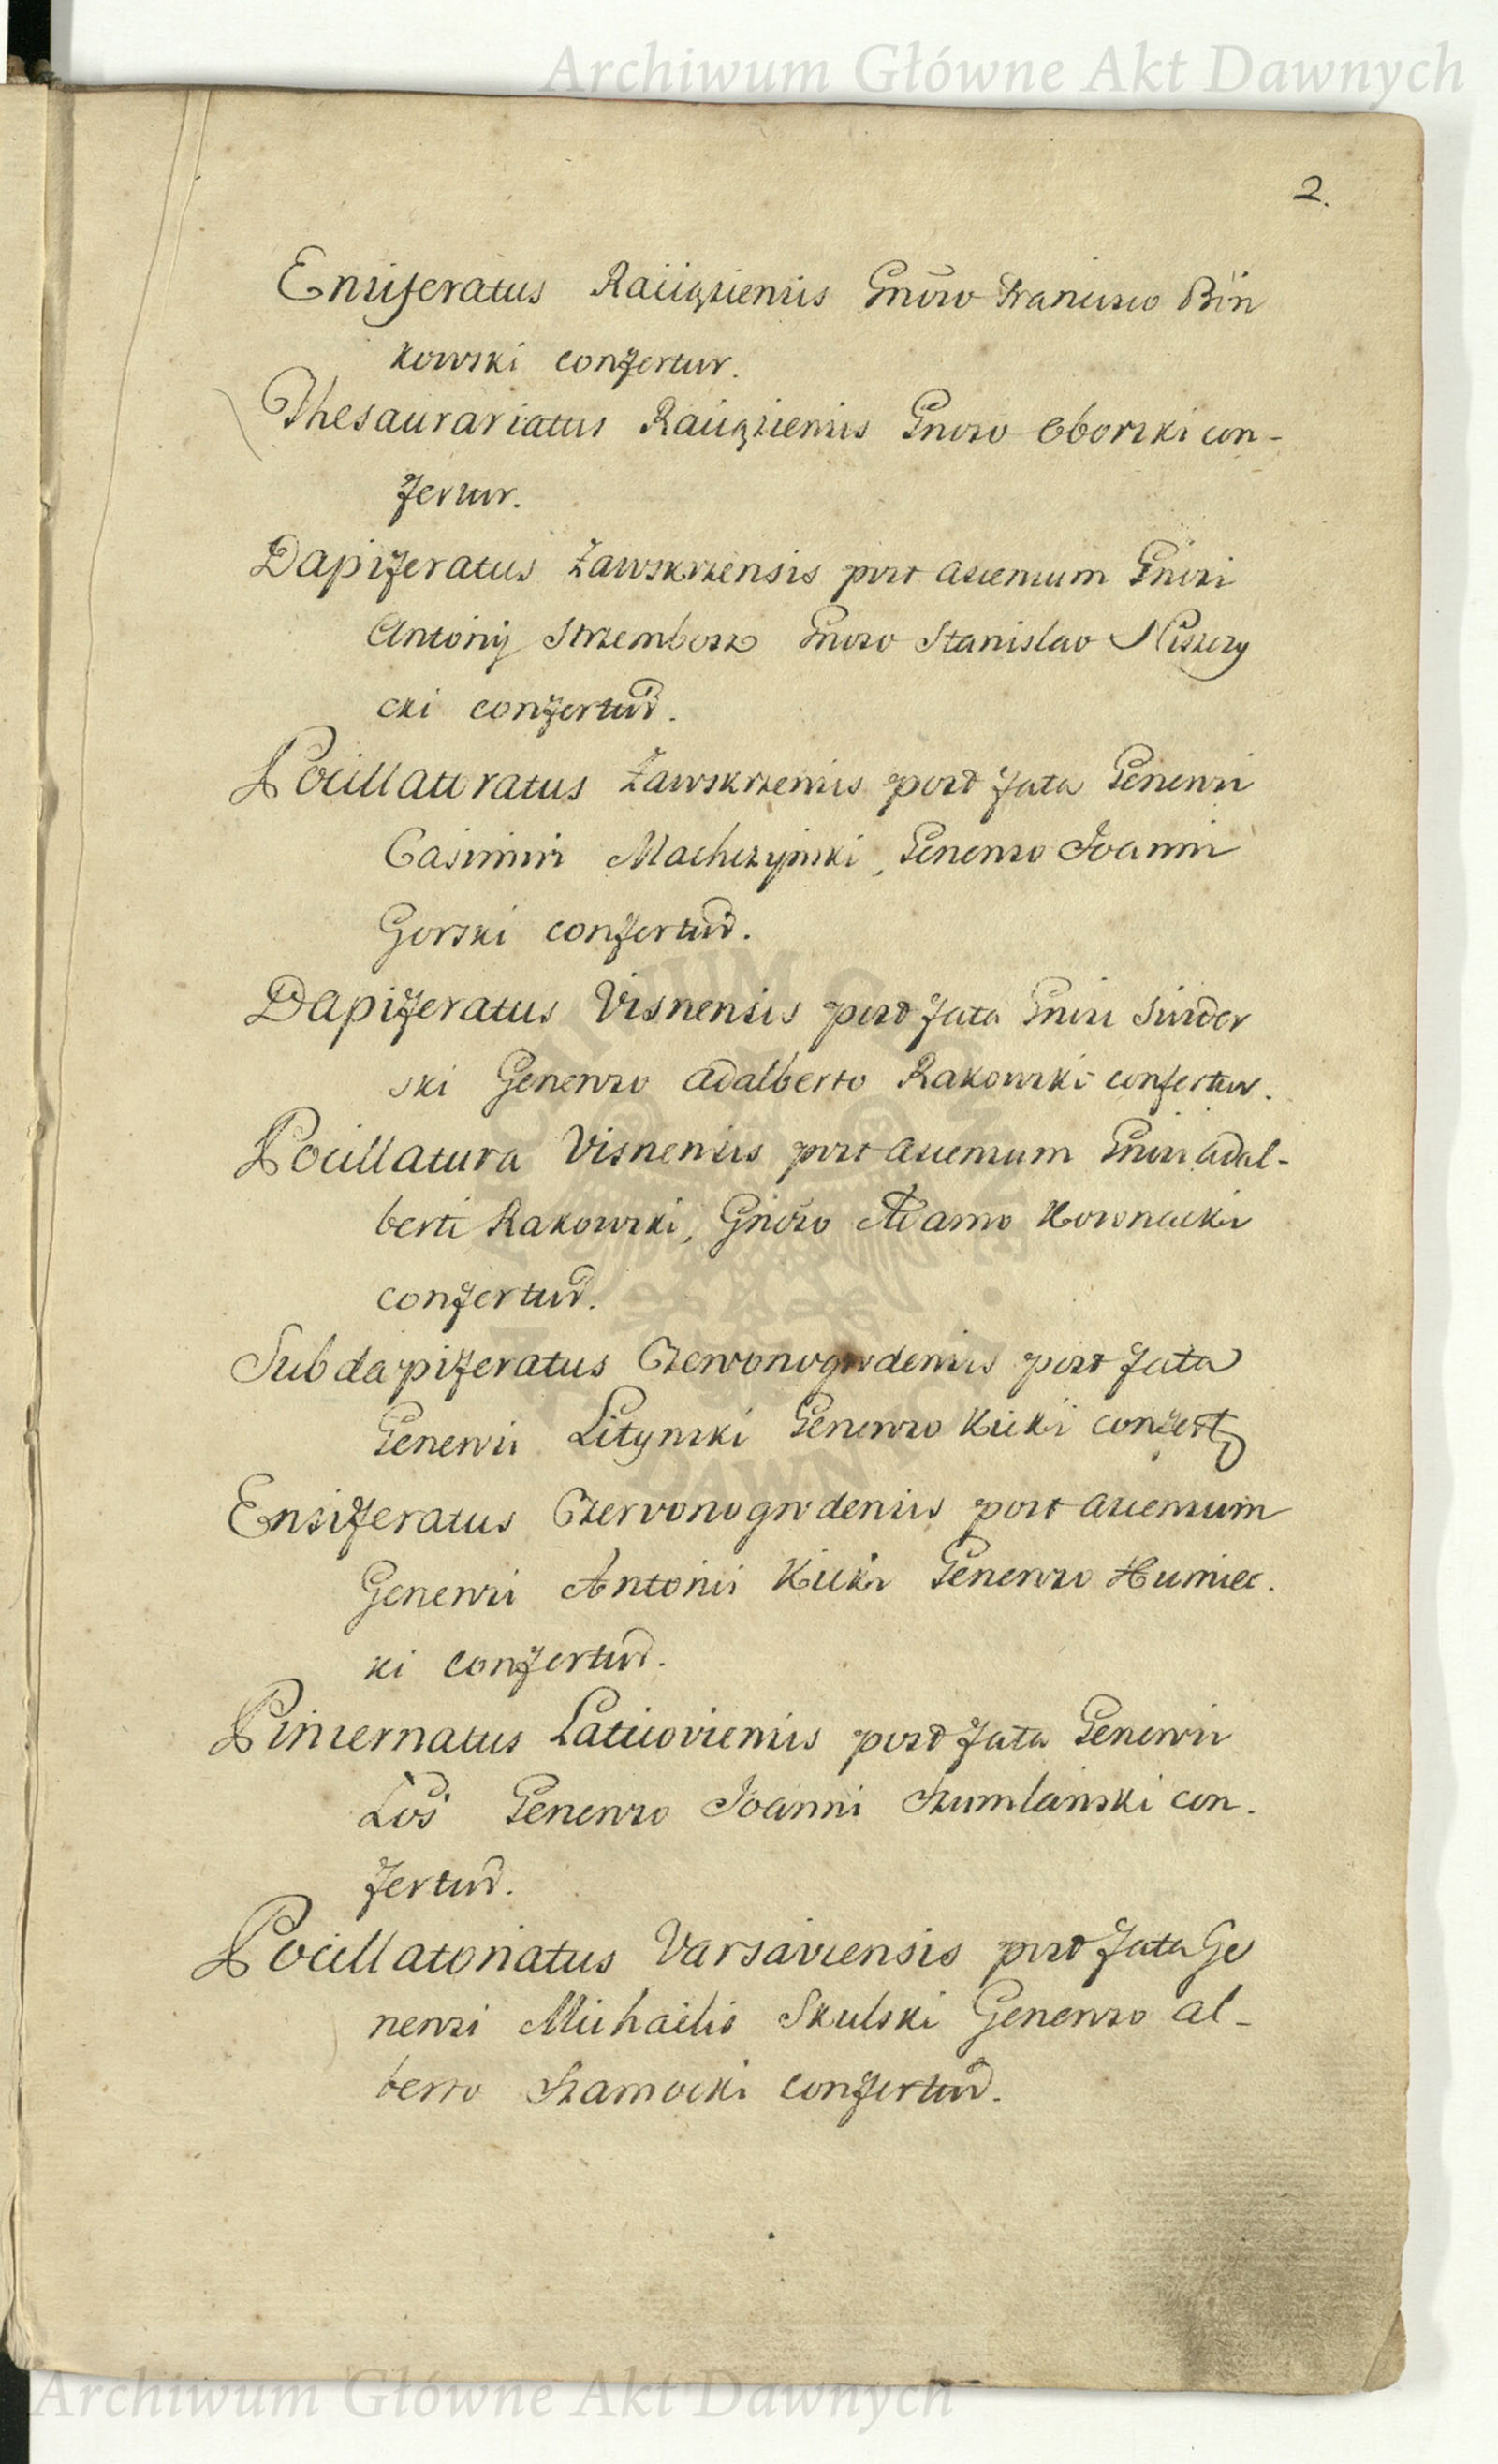 Archiwum Główne Akt Dawnych
2.
Ensiferatus Raciąziensis Gnoso Francisco Bin
kowski confertur.
Thesaurariatus Raciąziensis Gnoso Oborski con-
fertur.
Dapiferatus Zawskrzensis post ascensum Gnosi
Antonij Strzembosz Gnoso Stanislao Niszczy
cki confertur.
Pocillatoratus Zawskrzensis post fata Generosi
Casimiri Machczynski, Generoso Joanni
Gorski confertur.
Dapiferatus Visnensis post fata Gnosi
ski Generoso Adalberto Rakowski confertur.
Pocillatura Visnensis post ascensum Gnosi Adal-
berti Rakowski, Gnoso Adamo Kownacki
confertur.
Subdapiferatus Czerwonogrodensis post fata
Generosi Litynski Generoso Kicki confert
Ensiferatus Czervonogrodensis post ascensum
Generosi Antonii Kicki Generoso Humiec.
ki confertur.
Pincernatus Laticoviensis post fata Generosi
Łoś Generoso Joanni Szumlanski con.
fertur.
Pocillatoriatus Varsaviensis post fata Ge
nerosi Michaelis Skulski Generoso Al-
berto Szamocki confertur.
Archiwum Główne Akt Dawnych